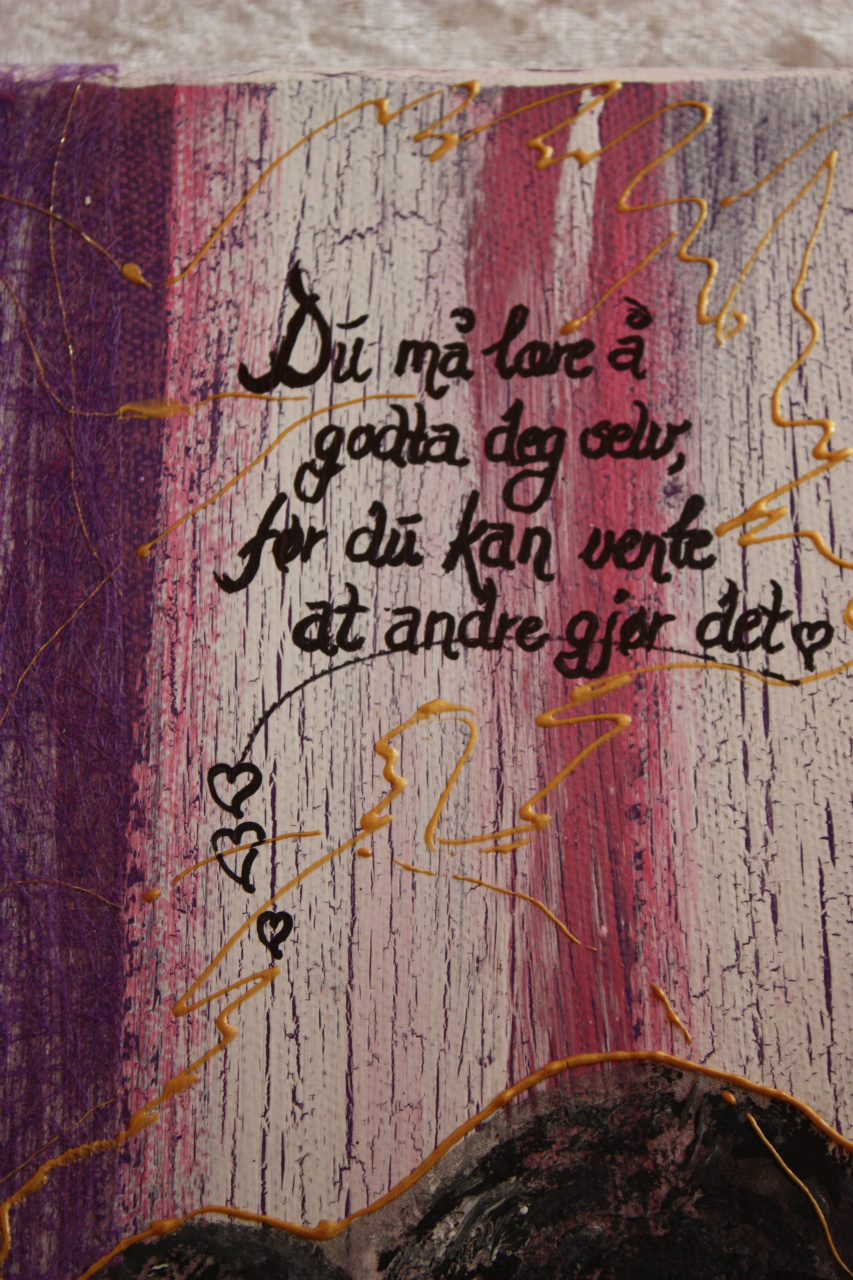 Du må lære å
godta deg selv,
før du kan vente
at andre gjør det